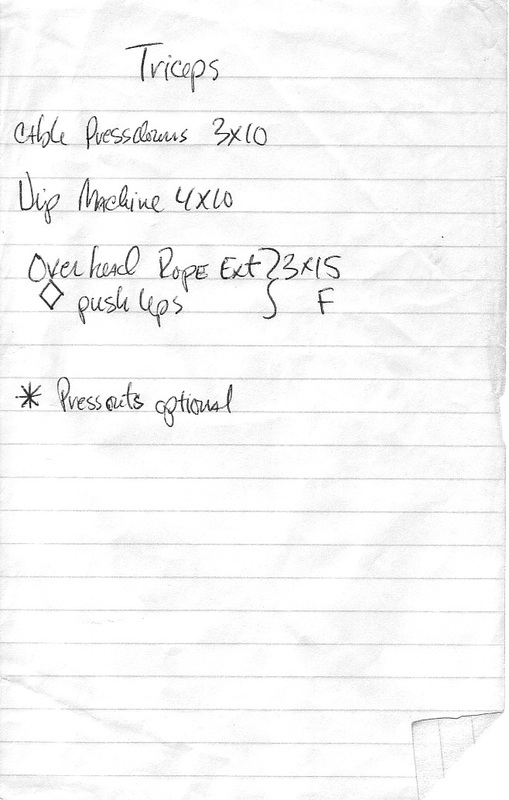 Triceps
Cable Pressdowns 3x10
Dip Machine 4x10
Overhead Rope Ext } 3x15
◇ push ups } F
* Pressouts optional